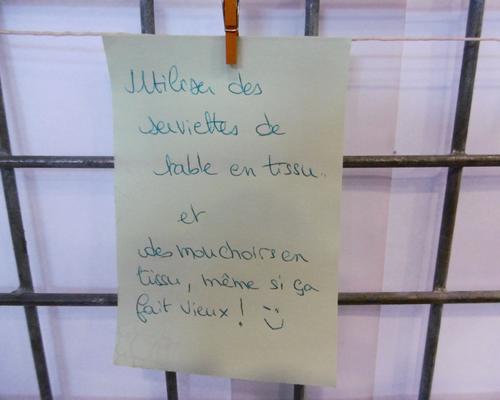 Utiliser des
serviettes de
table en tissu..
et
des mouchoirs en
tissu, même si ça
fait vieux ! :)